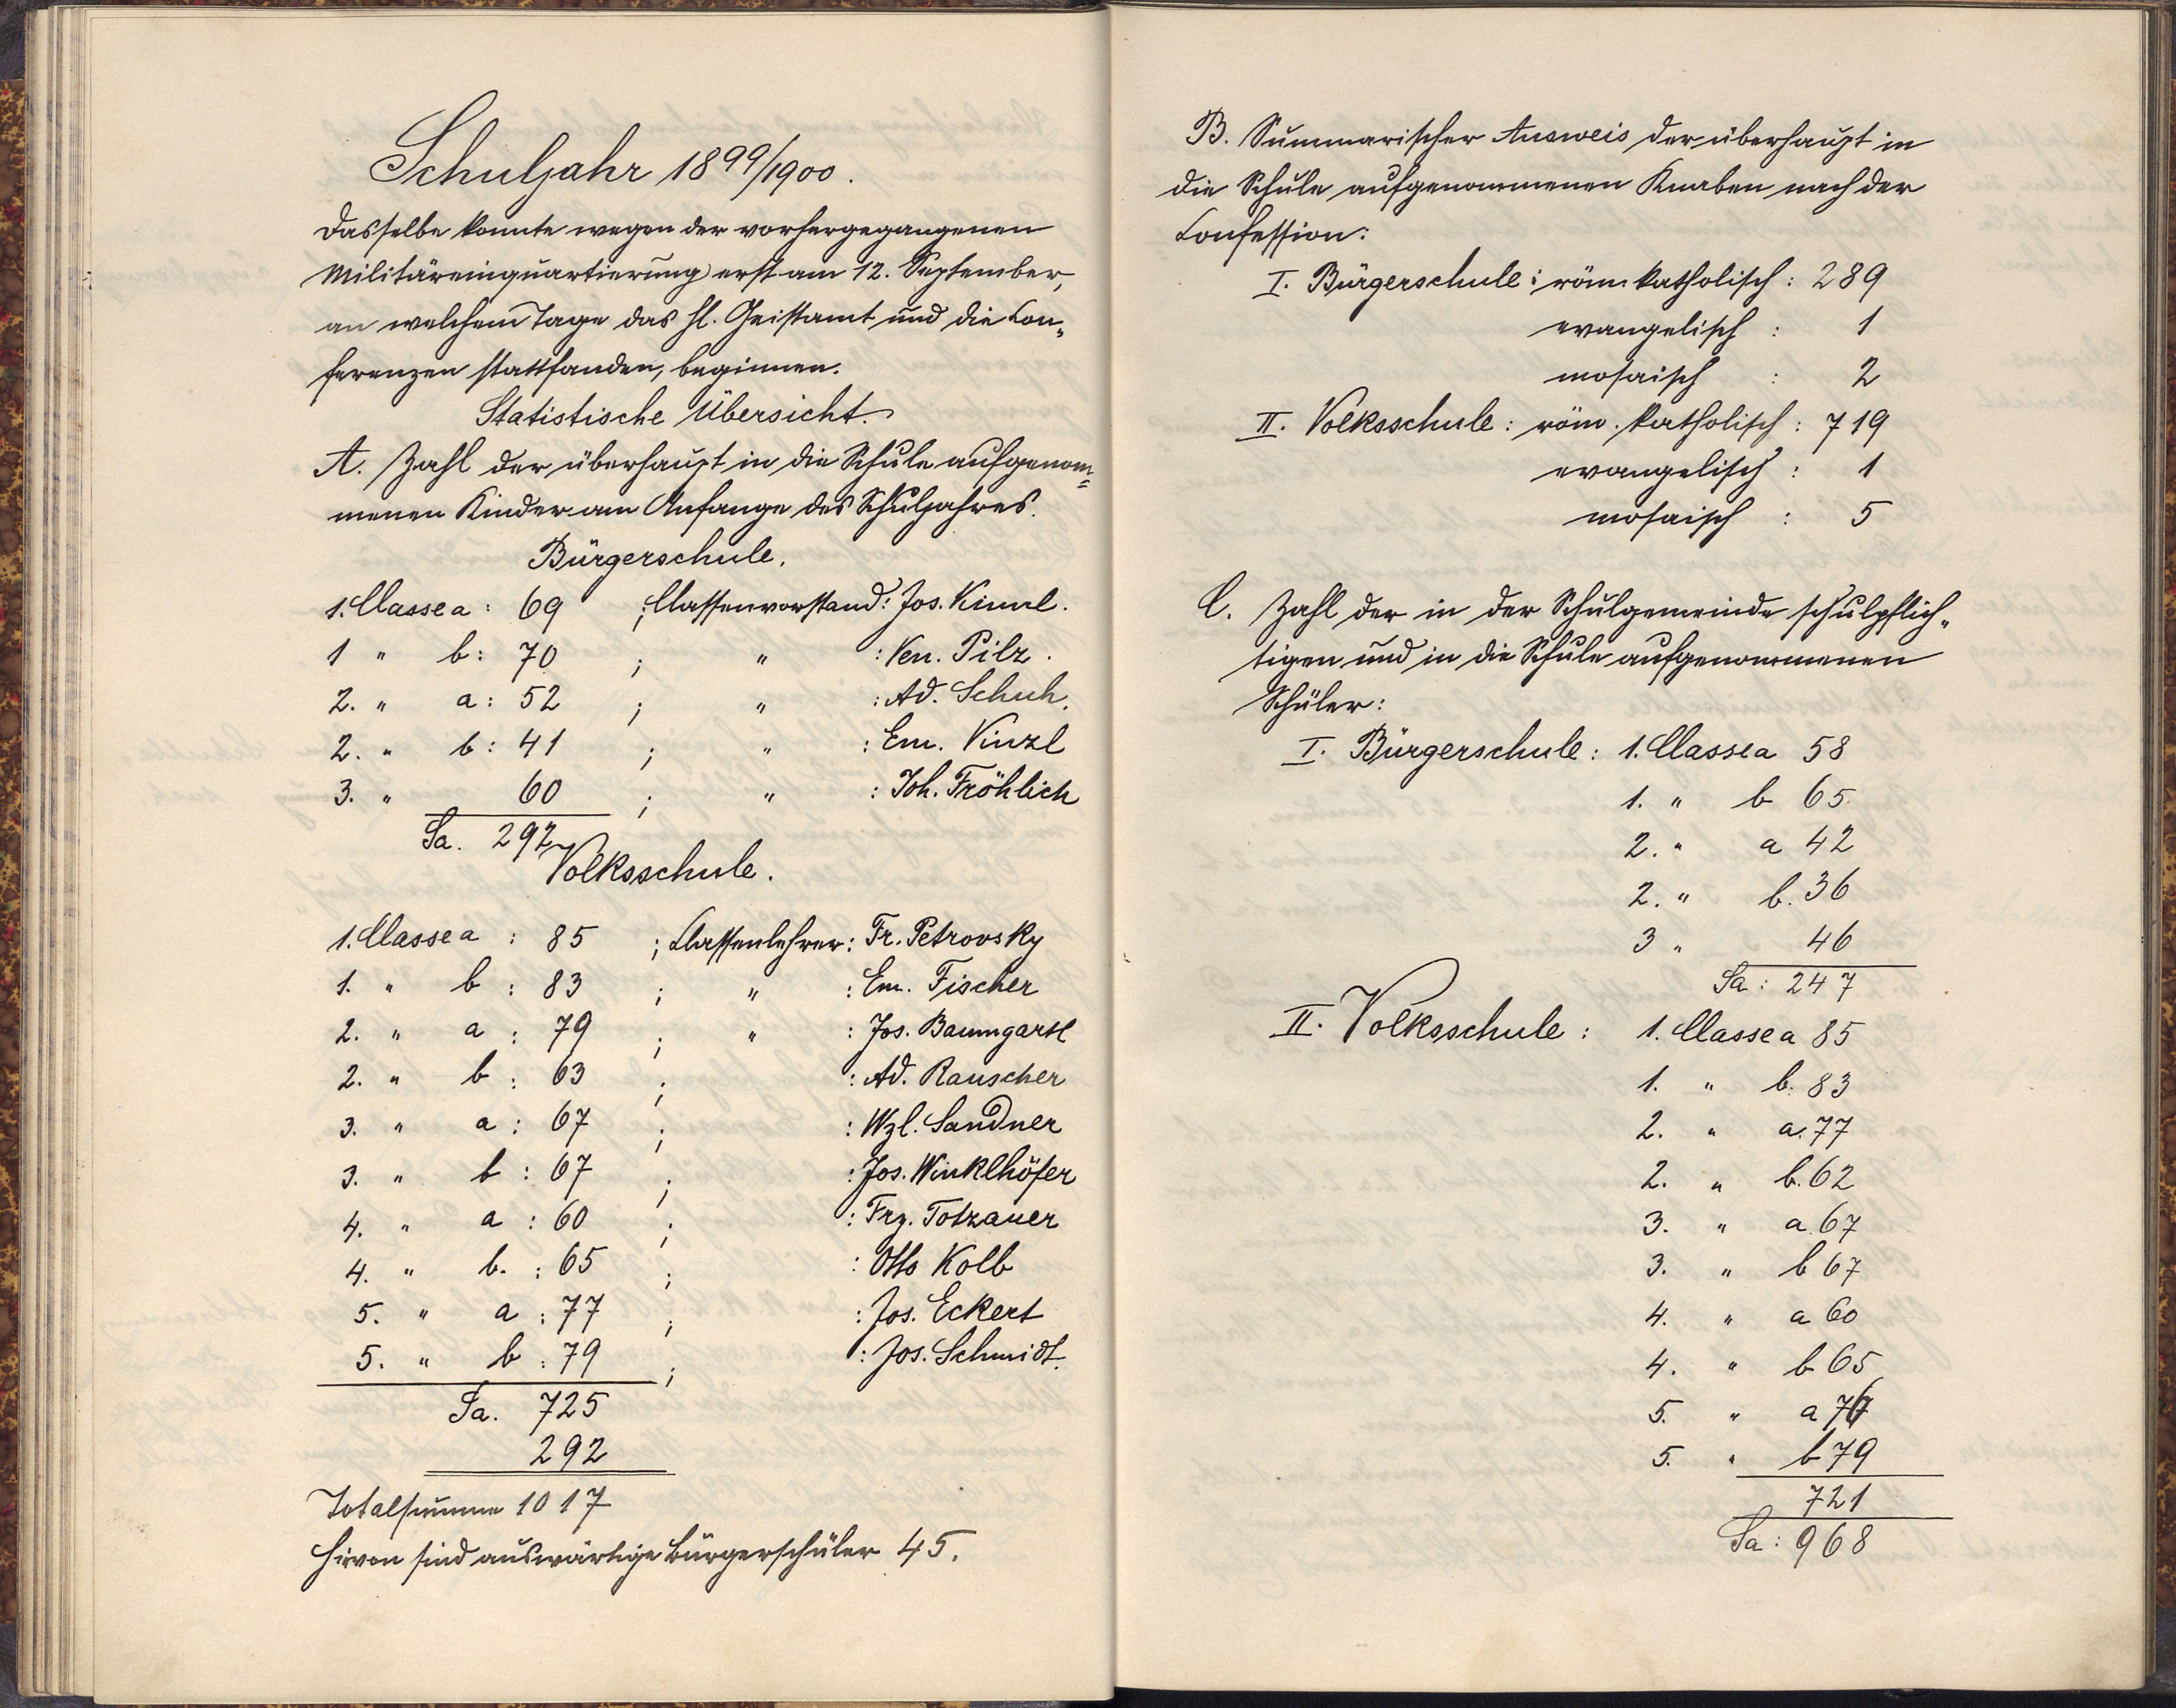 Schuljahr 1899/1900.
Dasselbe konnte wegen der vorhergegangenen
Militäreinquartierung erst am 12. September,
an welchem Tage das hl. Geistamt und die Con„
ferenzen stattfanden, beginnen.
Statistische Übersicht.
A. Zahl der überhaupt in die Schule aufgenom=
menen Kinder am Anfange des Schuljahres.
Bürgerschule.
1. Classe a: 69 ; Classenvorstand: Jos.
1 " b: 70 ; " : Ven. Pilz.
2. " a: 52 ; " : Ad. Schuh.
2. " b: 41 ; " : Em. Vinzl
3. " 60 ; " : Joh. Fröhlich
Sa. 292
Volksschule.
1. Classe a : 85 ; Classenlehrer: Fr. Petrovsky
1. " b : 83 ; " : Em. Fischer
2. " a : 79 ; " : Jos. Baumgartl
2. " b : 63 ; : Ad. Rauscher
3. " a : 67 ; : Wzl. Sandner
3. " b : 67 ; : Jos. Winklhöfer
4. " a : 60 ; : Frz. Totzauer
4. " b. : 65 ; : Otto Kolb
5. " a : 77 ; : Jos. Eckert
5. " b : 79 ; : Jos. Schmidt.
Sa. 725
292
Totalsumme 1017
Hievon sind auswärtige Bürgerschüler 45.
B. Summarischer Ausweis der überhaupt in
die Schule aufgenommenen Knaben nach der
Confession:
I. Bürgerschule: röm. katholisch: 289
evangelisch : 1
mosaisch : 2
II. Volksschule: röm. katholisch: 719
evangelisch : 1
mosaisch : 5
C. Zahl der in der Schulgemeinde schulpflich„
tigen und in die Schule aufgenommenen
Schüler:
I. Bürgerschule: 1. Classe a 58
1. " b 65
2. " a 42
2. " b. 36
3 " 46
Sa: 247
II. Volksschule: 1. Classe a 85
1. " b. 83
2. " a. 77
2. " b. 62
3. " a. 67
3. " b 67
4. " a 60
4. " b 65
5. " a
5. " b 79
721
Sa: 968